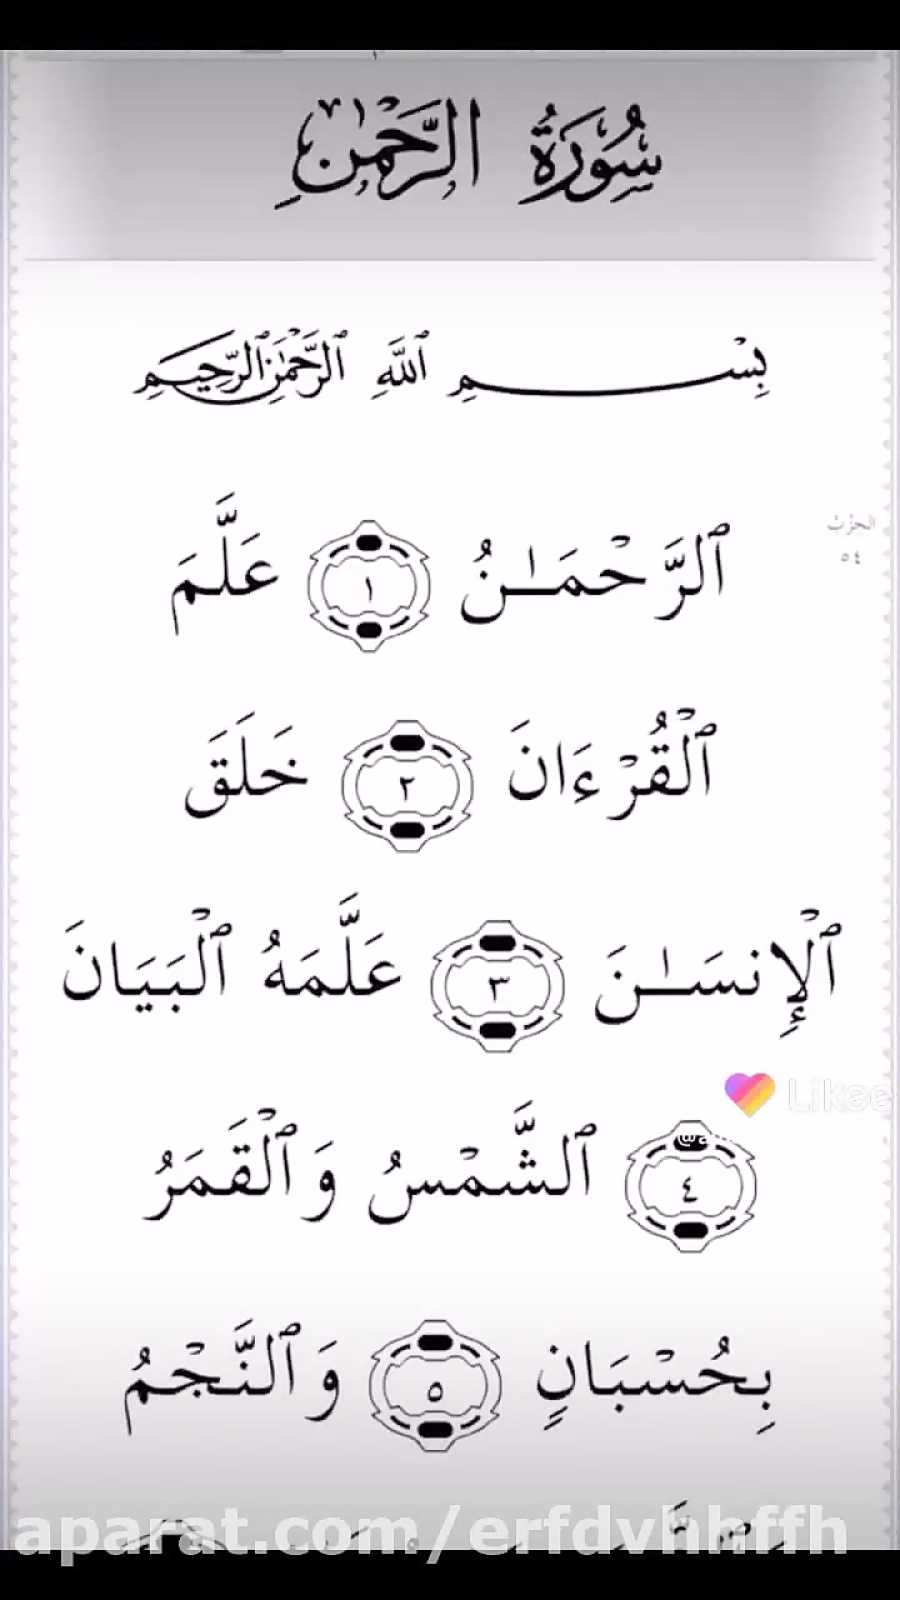 سُورَةُ الرَّحْمٰنِ
بِسْمِ ٱللَّهِ ٱلرَّحْمَٰنِ ٱلرَّحِيمِ
ٱلرَّحْمَـٰنُ ١ عَلَّمَ
الحِزْبُ
٥٤
ٱلْقُرْءَانَ ٢ خَلَقَ
ٱلْإِنسَـٰنَ ٣ عَلَّمَهُ ٱلْبَيَانَ
Likee
٤ ٱلشَّمْسُ وَٱلْقَمَرُ
بِحُسْبَانٍ ٥ وَٱلنَّجْمُ
aparat.com/erfdvhhffh